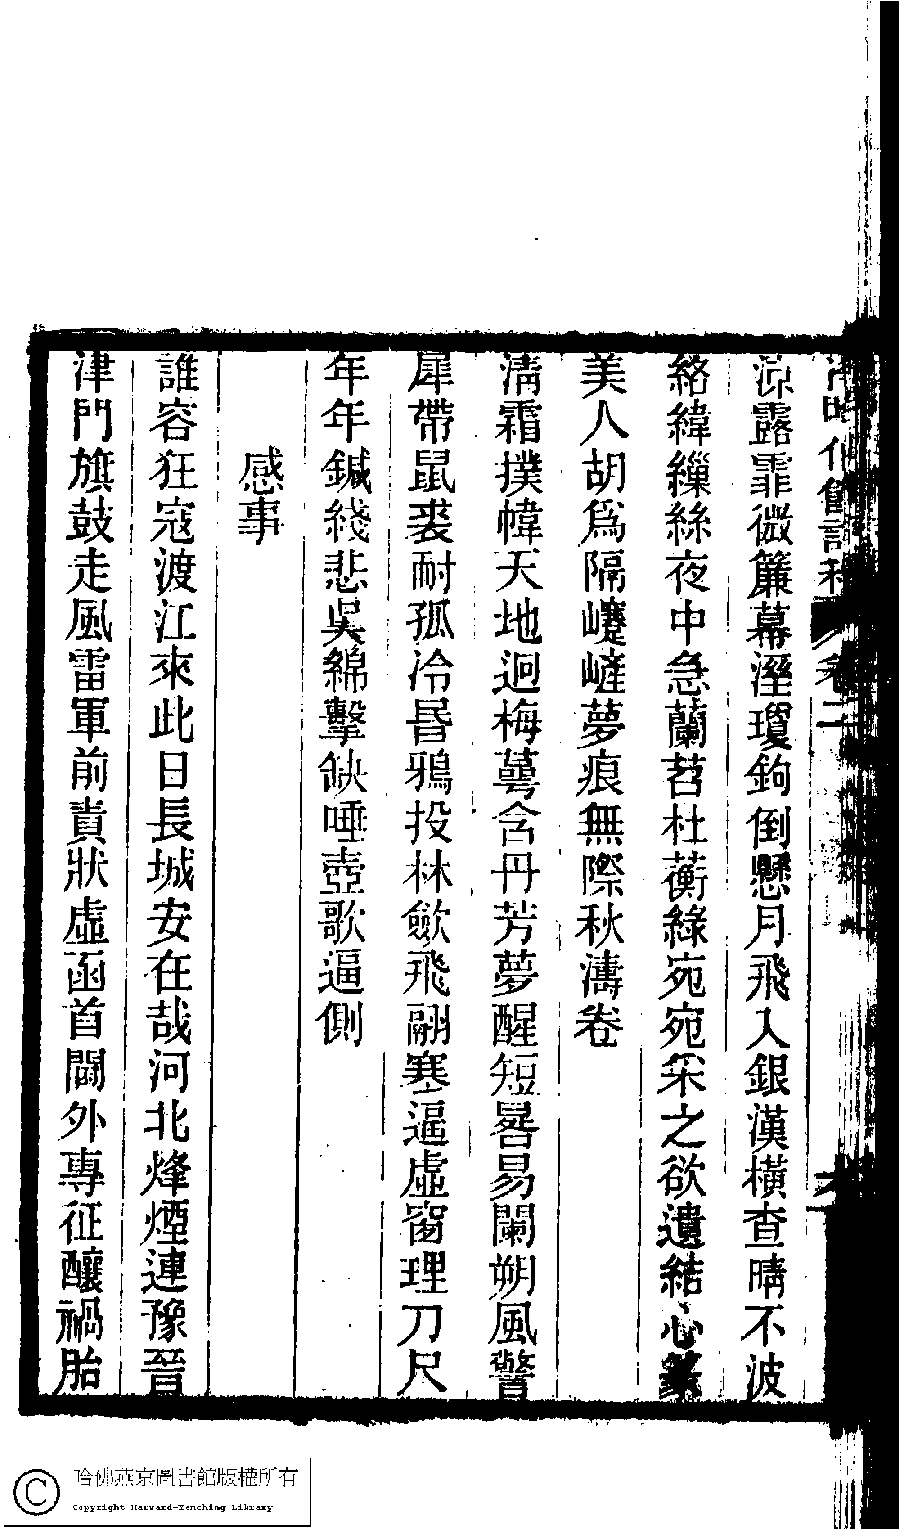 涼露霏微簾幕溼瓊鉤倒懸月飛入銀漢橫查晴不波
絡緯繅絲夜中急蘭苕杜蘅綠宛宛采之欲遺結心
美人胡爲隔巙嵯夢痕無際秋濤卷
清霜撲幃天地迥梅萼含丹芳夢醒短晷易闌朔風警
犀帶鼠裘耐孤冷昏鴉投林斂飛翮寒逼虛窗理刀尺
年年鍼綫悲吳綿擊缺唾壺歌逼側
感事
誰容狂寇渡江來此日長城安在哉河北烽煙連豫晉
津門旗鼓走風雷軍前責狀虛函首閫外專征釀禍胎
哈佛燕京圖書館版權所有
Copyright Harvard-Yenching Library